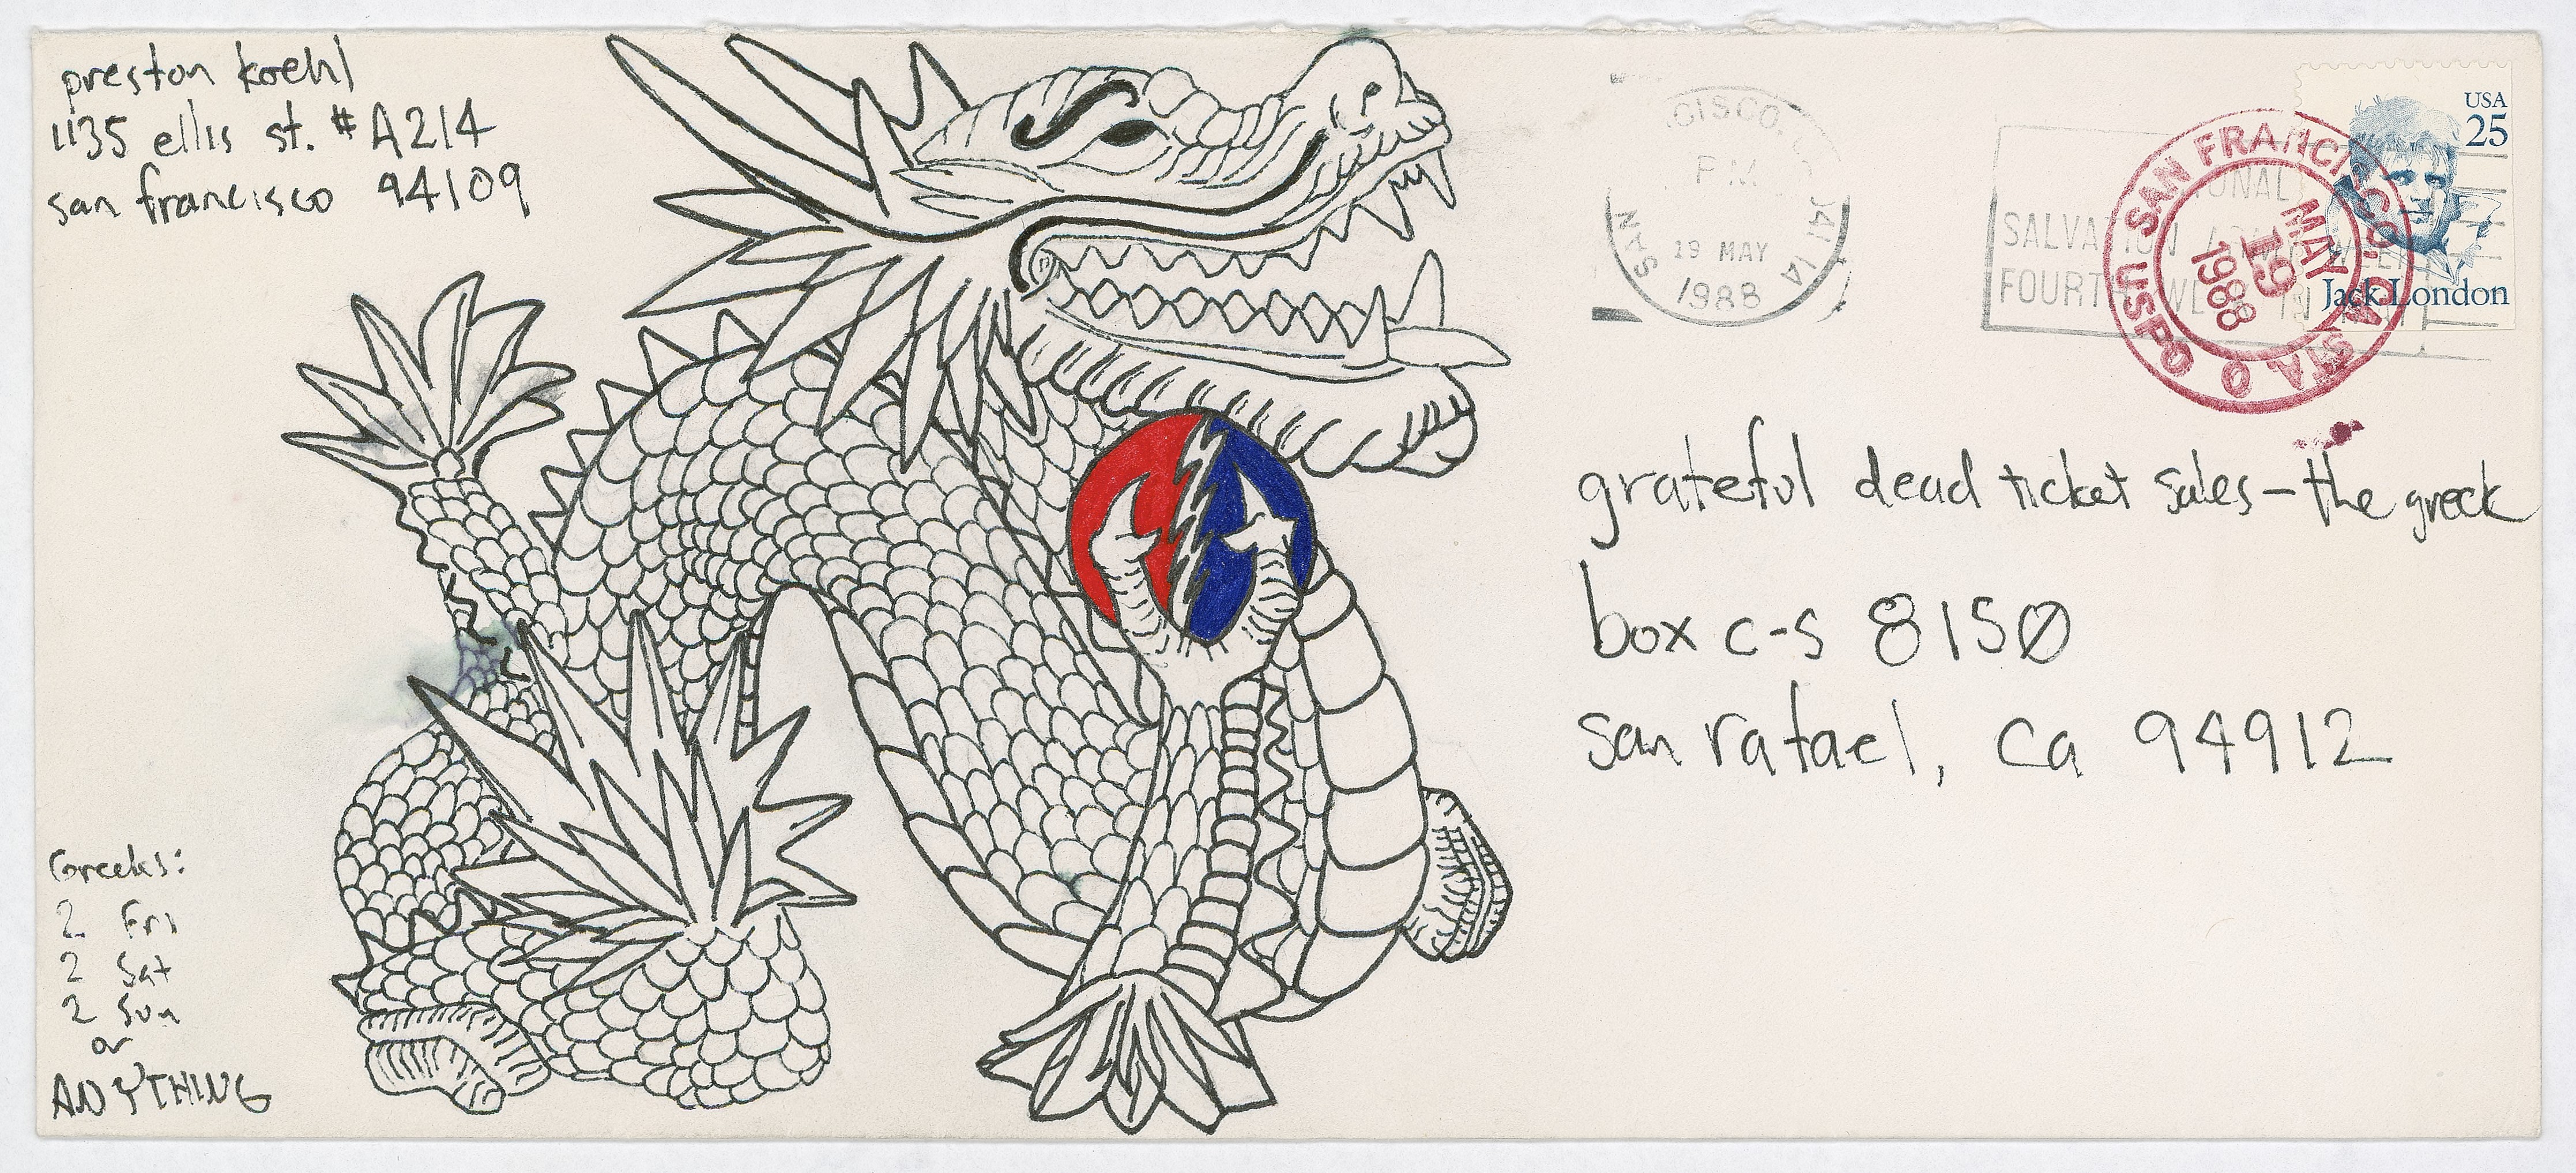 preston koehl
1135 ellis st. #A214
san francisco 94109
CISCO
PM
19 MAY
1988
USA
25
Jack London
SALVATION ARMY WEEK
FOURTH WEEK IN MAY
SAN FRANCISCO, CA
STA. O
USPO
MAY
19
1988
grateful dead ticket sales – the greek
box c-s 8150
san rafael, ca 94912
Greeks:
2 Fri
2 Sat
2 Sun
or
ANYTHING